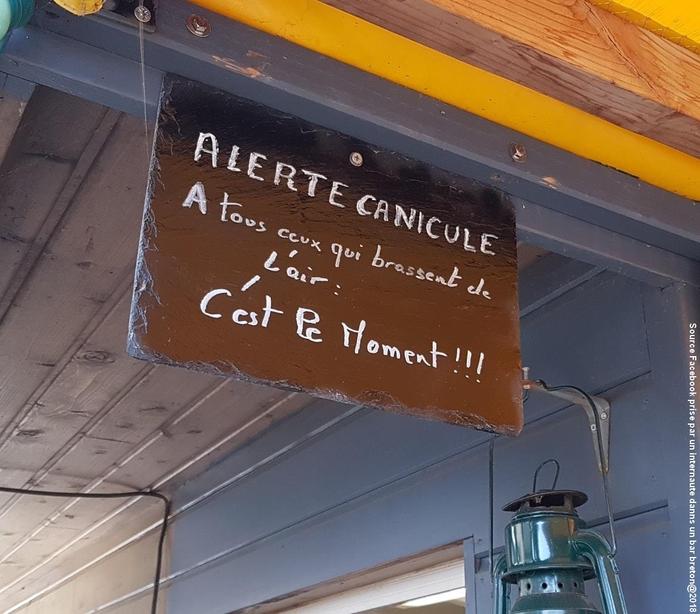 ALERTE CANICULE
A tous ceux qui brassent de
L'air :
C'est Le Moment !!!
Source Facebook prise par un internaute danns un bar breton@20